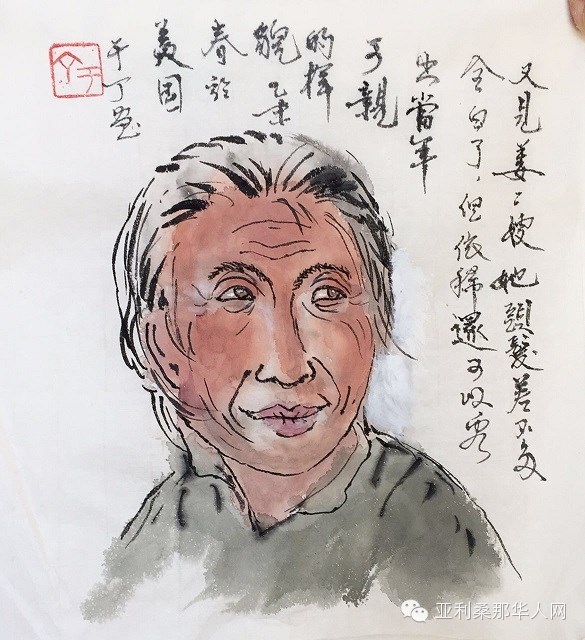 又見姜二嫂她頭髮差不多
全白了，但依稀還可以看
出當年
可親
的樣
貌乙未
春於
美国
于丁畫
亚利桑那华人网